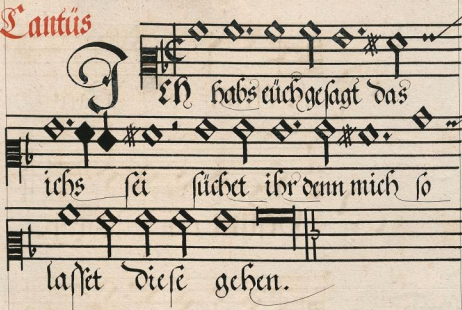 Cantüs
Ich habs eüch gesagt das
ichs sei süchet ihr denn mich so
lasset diese gehen.